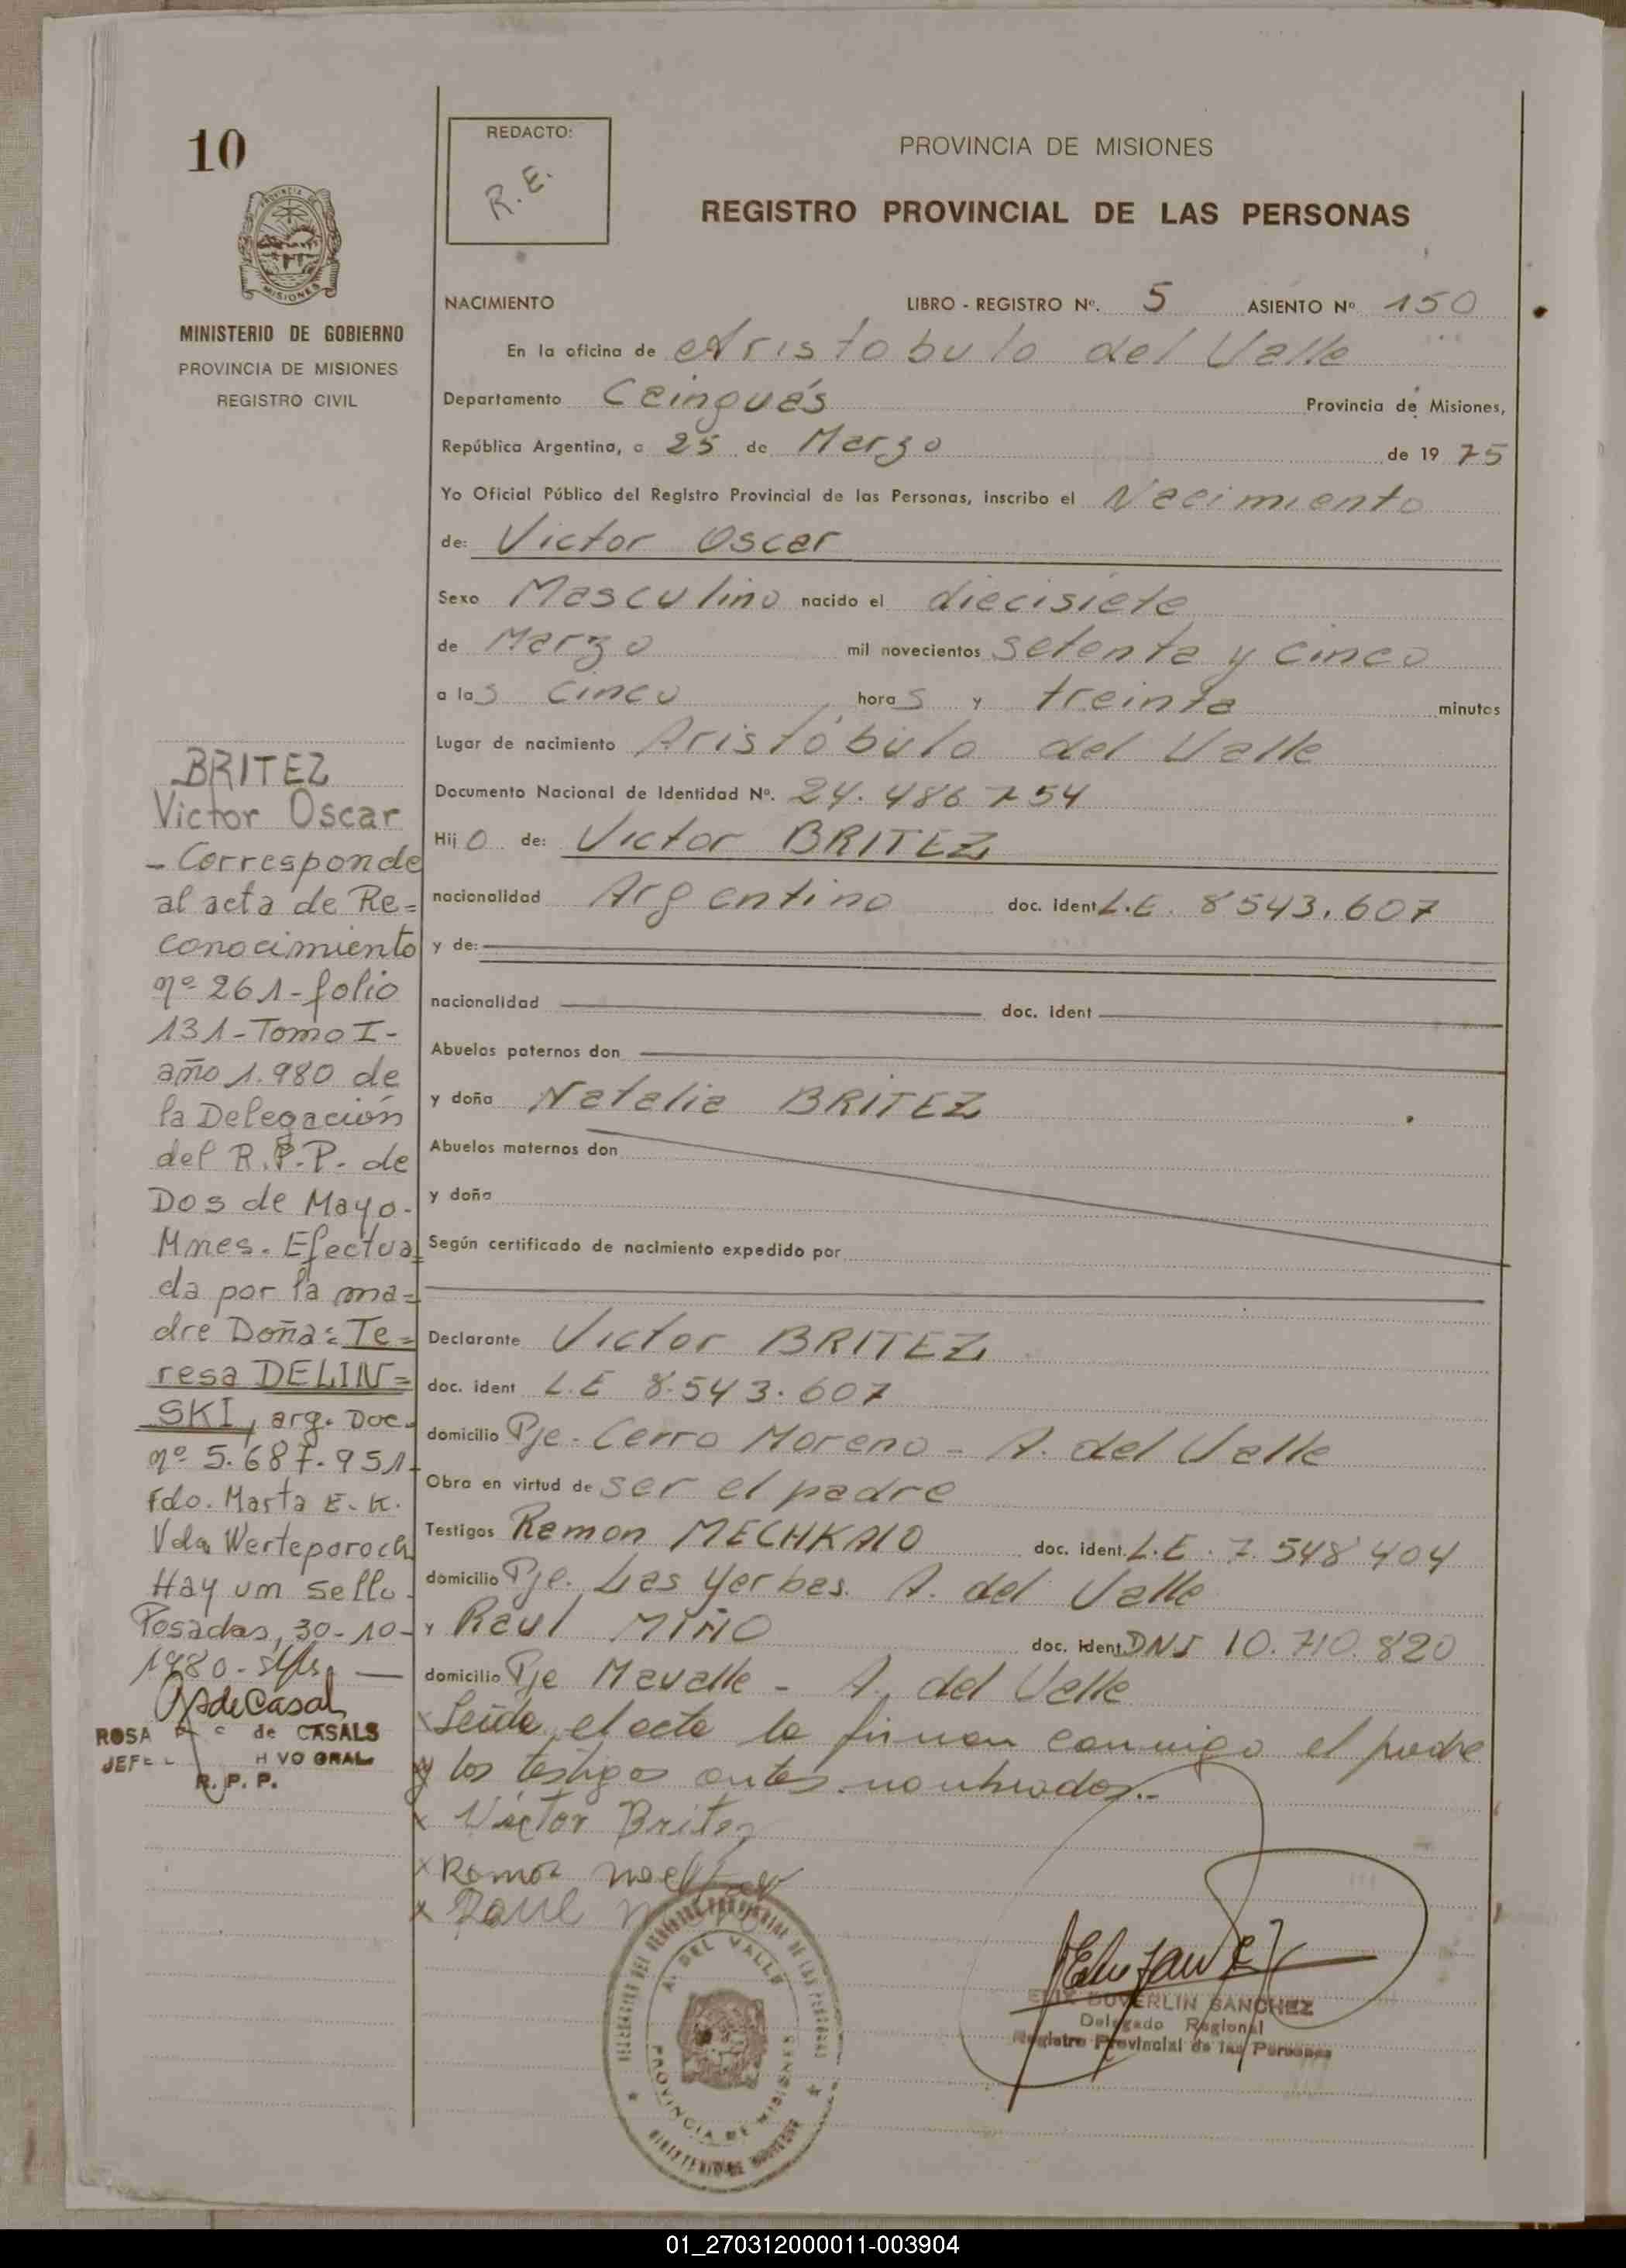 10
PROVINCIA DE
MISIONES
MINISTERIO DE GOBIERNO
PROVINCIA DE MISIONES
REGISTRO CIVIL
REDACTO:
R.E.
PROVINCIA DE MISIONES
REGISTRO PROVINCIAL DE LAS PERSONAS
NACIMIENTO LIBRO - REGISTRO Nº. 5 ASIENTO Nº 150
En la oficina de Aristobulo del Valle
Departamento Caingués Provincia de Misiones,
República Argentina, a 25 de Marzo de 1975
Yo Oficial Público del Registro Provincial de las Personas, inscribo el Nacimiento
de: Victor Oscar
Sexo Masculino nacido el diecisiete
de Marzo mil novecientos setenta y cinco
a las cinco horas y treinta minutos
Lugar de nacimiento Aristóbulo del Valle
Documento Nacional de Identidad Nº. 24.486.754
Hijo de: Victor BRITEZ
nacionalidad Argentino doc. ident L.E. 8543.607
y de:
nacionalidad doc. ident
Abuelos paternos don
y doña Natalia BRITEZ
Abuelos maternos don
y doña
Según certificado de nacimiento expedido por
Declarante Victor BRITEZ
doc. ident L.E 8.543.607
domicilio Pje. Cerro Moreno - A. del Valle
Obra en virtud de ser el padre
Testigos Ramon MECHKAIO doc. ident. L.E. 7.548.404
domicilio Pje. Las Yerbas. A. del Valle
y Raul MIÑO doc. ident. DNI 10.710.820
domicilio Pje Mavalle - A. del Valle
x Leída el acta la firman conmigo el padre
y los testigos antes nombrados.-
x Victor Britez
x Ramon
x Raul
BRITEZ
Victor Oscar
- Corresponde
al acta de Re=
conocimiento
nº 261 - folio
131 - Tomo I -
año 1.980 de
la Delegación
del R.P.P. de
Dos de Mayo.
Mnes. Efectua
da por la ma=
dre Doña: Te=
resa DELIN=
SKI, arg. Doc.
nº 5.687.951
Fdo. Marta E. K.
Vda Werteporoch
Hay un sello.
Posadas, 30-10-
1980.-
ROSA de CASALS
R. P. P.
DELEGACION DEL REGISTRO PROVINCIAL DE LAS PERSONAS
A. DEL VALLE
PROVINCIA DE MISIONES
MINISTERIO DE GOBIERNO
DUVERLIN SANCHEZ
Delegado Regional
Registro Provincial de las Personas
01_270312000011-003904